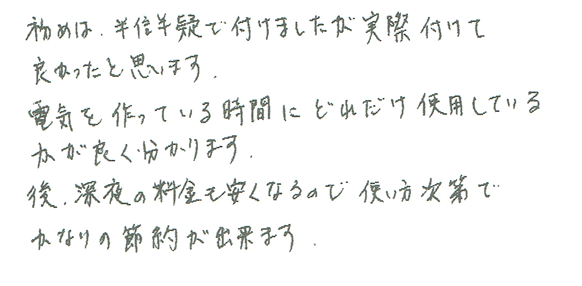 初めは、半信半疑で付けましたが実際付けて
良かったと思います。
電気を作っている時間にどれだけ使用している
かが良く分かります。
後、深夜の料金も安くなるので使い方次第で
かなりの節約が出来ます。